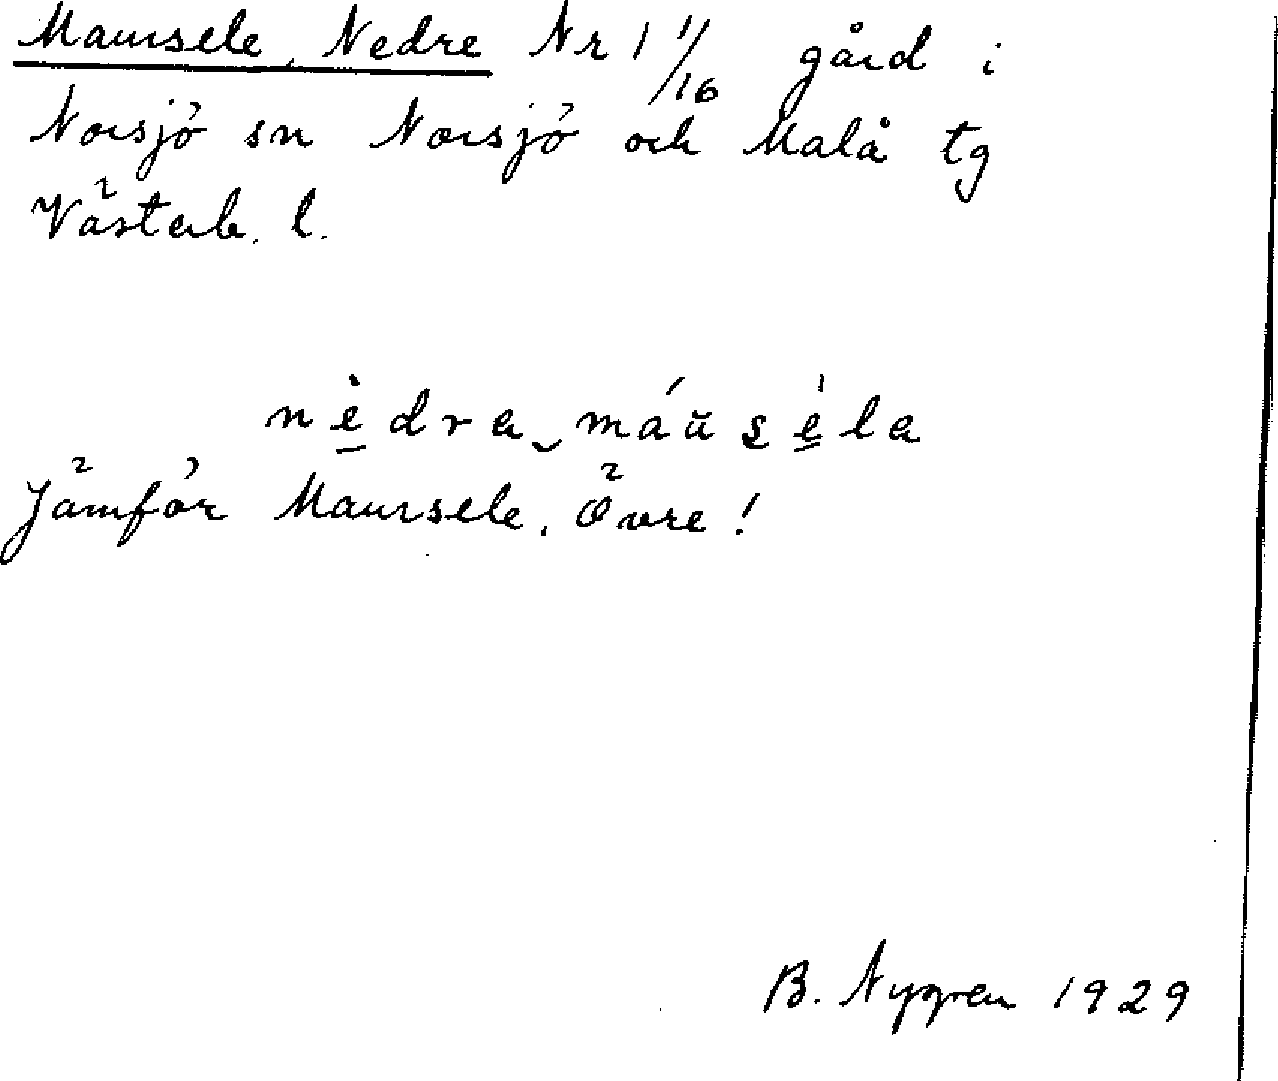 Maursele, Nedre Nr 1 1/16 gård i
Norsjö sn Norsjö och Malå tg
Västerb. l.
nè̱dra‿máŭse̳̍la
Jämför Maursele, Övre!
B. Nygren 1929